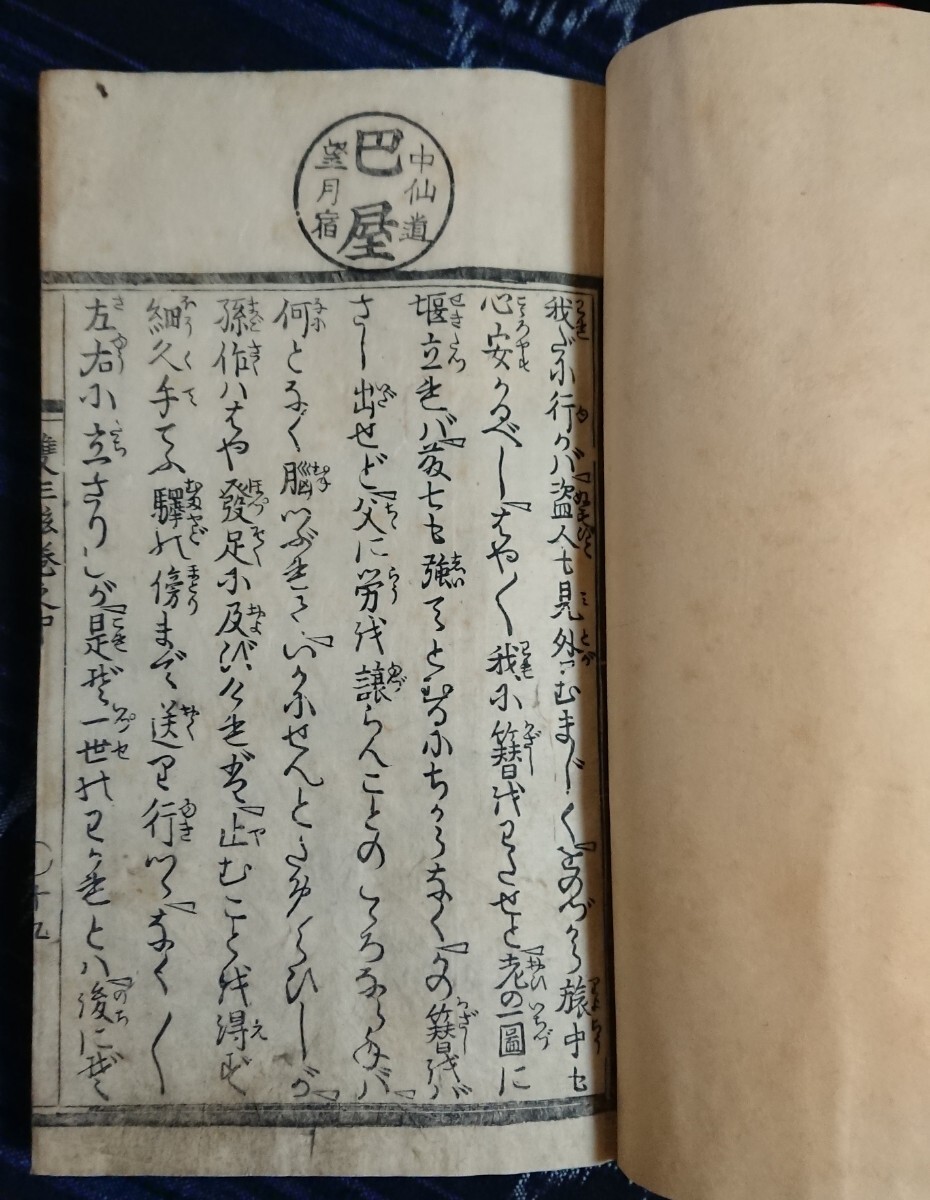 中仙道
巴屋
望月宿
我だに行かバ盗人も見外さむまじくをのづから旅中も
心安かるべしはやく我に簪をわたせと老の一圖に
堰立れバ
強てとむるにちからなくかの簪をバ
さし出せど父に労を譲らんことのこゝろならねバ
何となく胸つぶれていかにせんとためらひしが
孫作ハはや發足に及びければ止むことを得ず
細久手てふ驛の傍まで送り行つゝなく〳〵
左右に立さりしが是ぞ一世のわかれとハ後にぞ
巻之中
〇十九